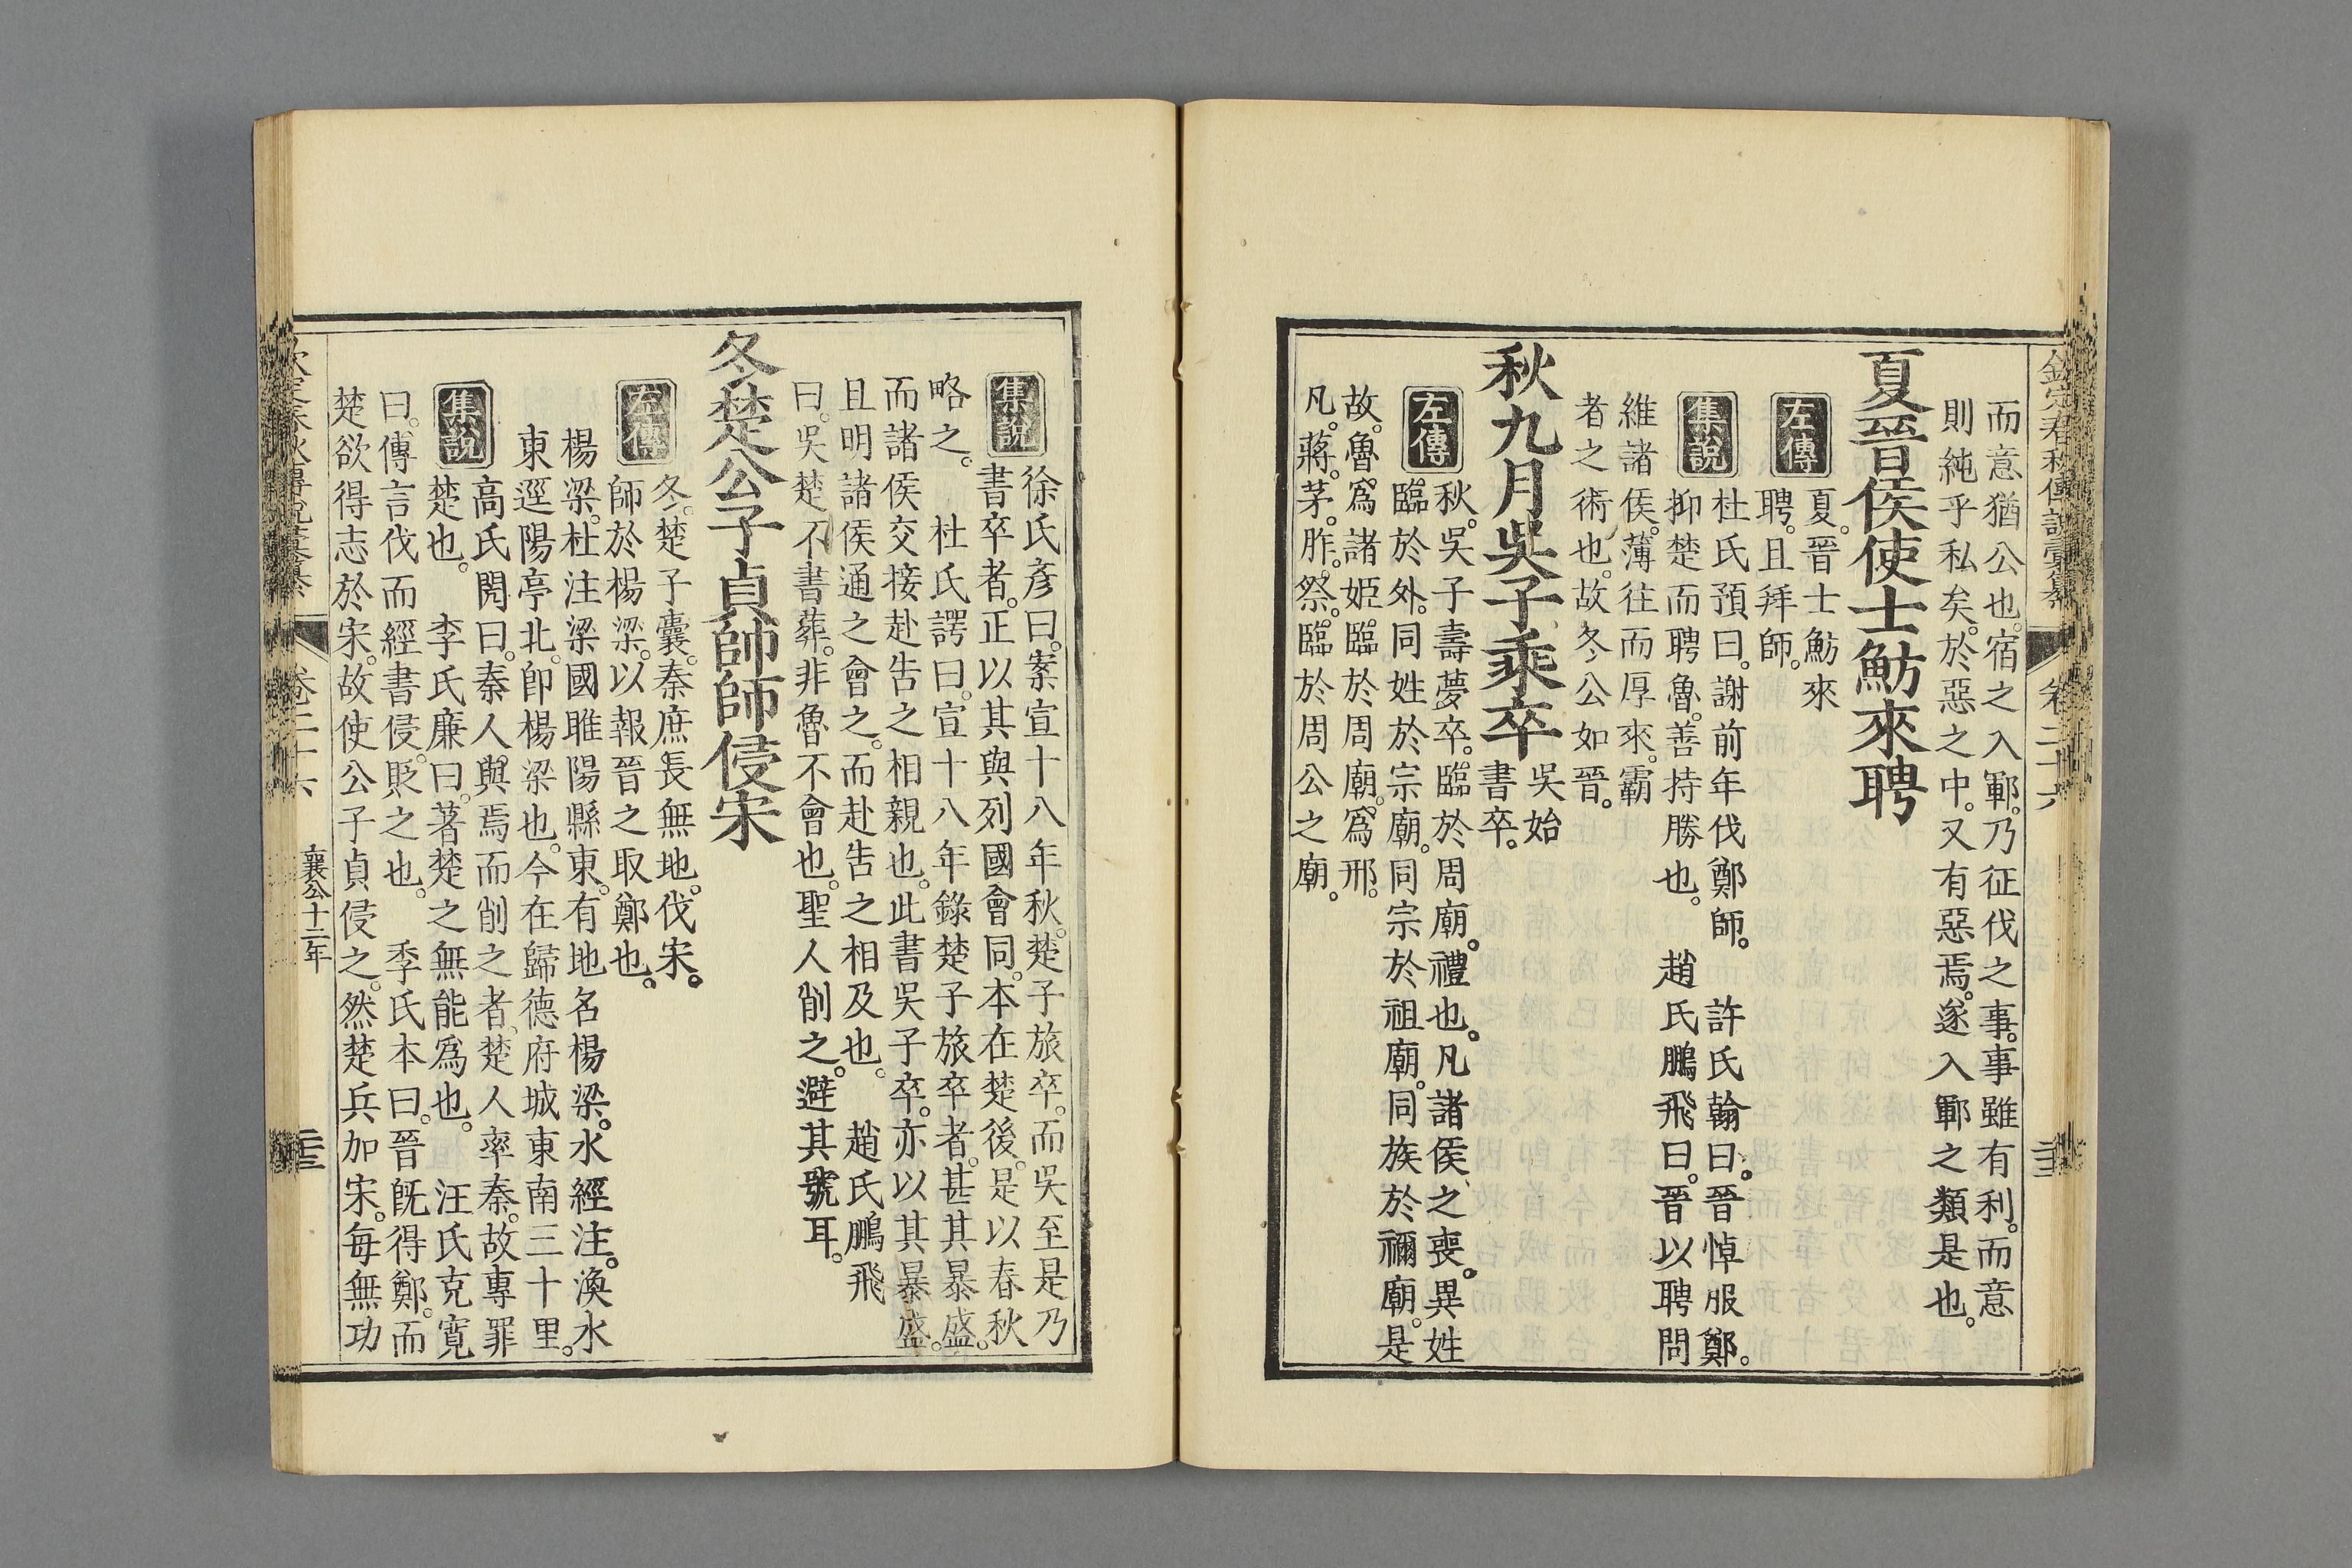 欽定春秋傳說彙纂 卷二十六
而意猶公也。宿之入鄆。乃征伐之事。事雖有利。而意
則純乎私矣。於惡之中。又有惡焉。遂入鄆之類是也。
夏晉侯使士魴來聘
左傳
夏。晉士魴來
聘。且拜師。
集說
杜氏預曰。謝前年伐鄭師。 許氏翰曰。晉悼服鄭。
抑楚而聘魯。善持勝也。 趙氏鵬飛曰。晉以聘問
維諸侯。薄往而厚來。霸
者之術也。故冬公如晉。
秋九月吳子乘卒
吳始
書卒。
左傳
秋。吳子壽夢卒。臨於周廟。禮也。凡諸侯之喪。異姓
臨於外。同姓於宗廟。同宗於祖廟。同族於禰廟。是
故。魯爲諸姬。臨於周廟。爲邢。
凡。蔣。茅。胙。祭。臨於周公之廟。
集說
徐氏彥曰。案宣十八年秋。楚子旅卒。而吳至是乃
書卒者。正以其與列國會同。本在楚後。是以春秋
略之。 杜氏諤曰。宣十八年錄楚子旅卒者。甚其暴盛。
而諸侯交接赴告之相親也。此書吳子卒。亦以其暴盛。
且明諸侯通之會之。而赴告之相及也。 趙氏鵬飛
曰。吳楚不書葬。非魯不會也。聖人削之。避其號耳。
冬楚公子貞帥師侵宋
左傳
冬。楚子囊。秦庶長無地。伐宋。
師於楊梁。以報晉之取鄭也。
楊梁。杜注梁國睢陽縣東。有地名楊梁。水經注。渙水
東逕陽亭北。卽楊梁也。今在歸德府城東南三十里。
集說
高氏閌曰。秦人與焉而削之者。楚人率秦。故專罪
楚也。 李氏廉曰。著楚之無能爲也。 汪氏克寬
曰。傳言伐而經書侵。貶之也。 季氏本曰。晉旣得鄭。而
楚欲得志於宋。故使公子貞侵之。然楚兵加宋。每無功
欽定春秋傳說彙纂 卷二十六 襄公十二年